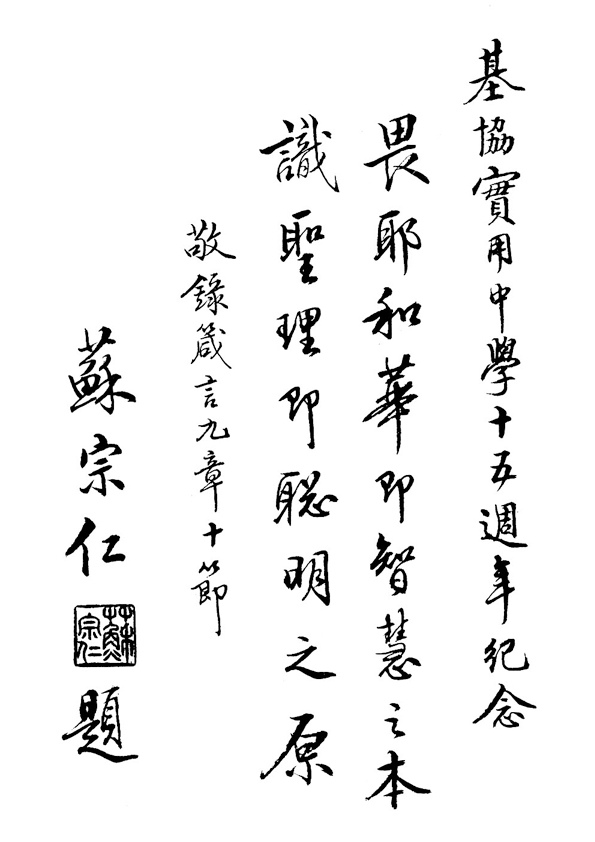 基協實用中學十五週年紀念
畏耶和華即智慧之本
識聖理即聰明之原
敬錄箴言九章十節
蘇宗仁題
蘇宗仁